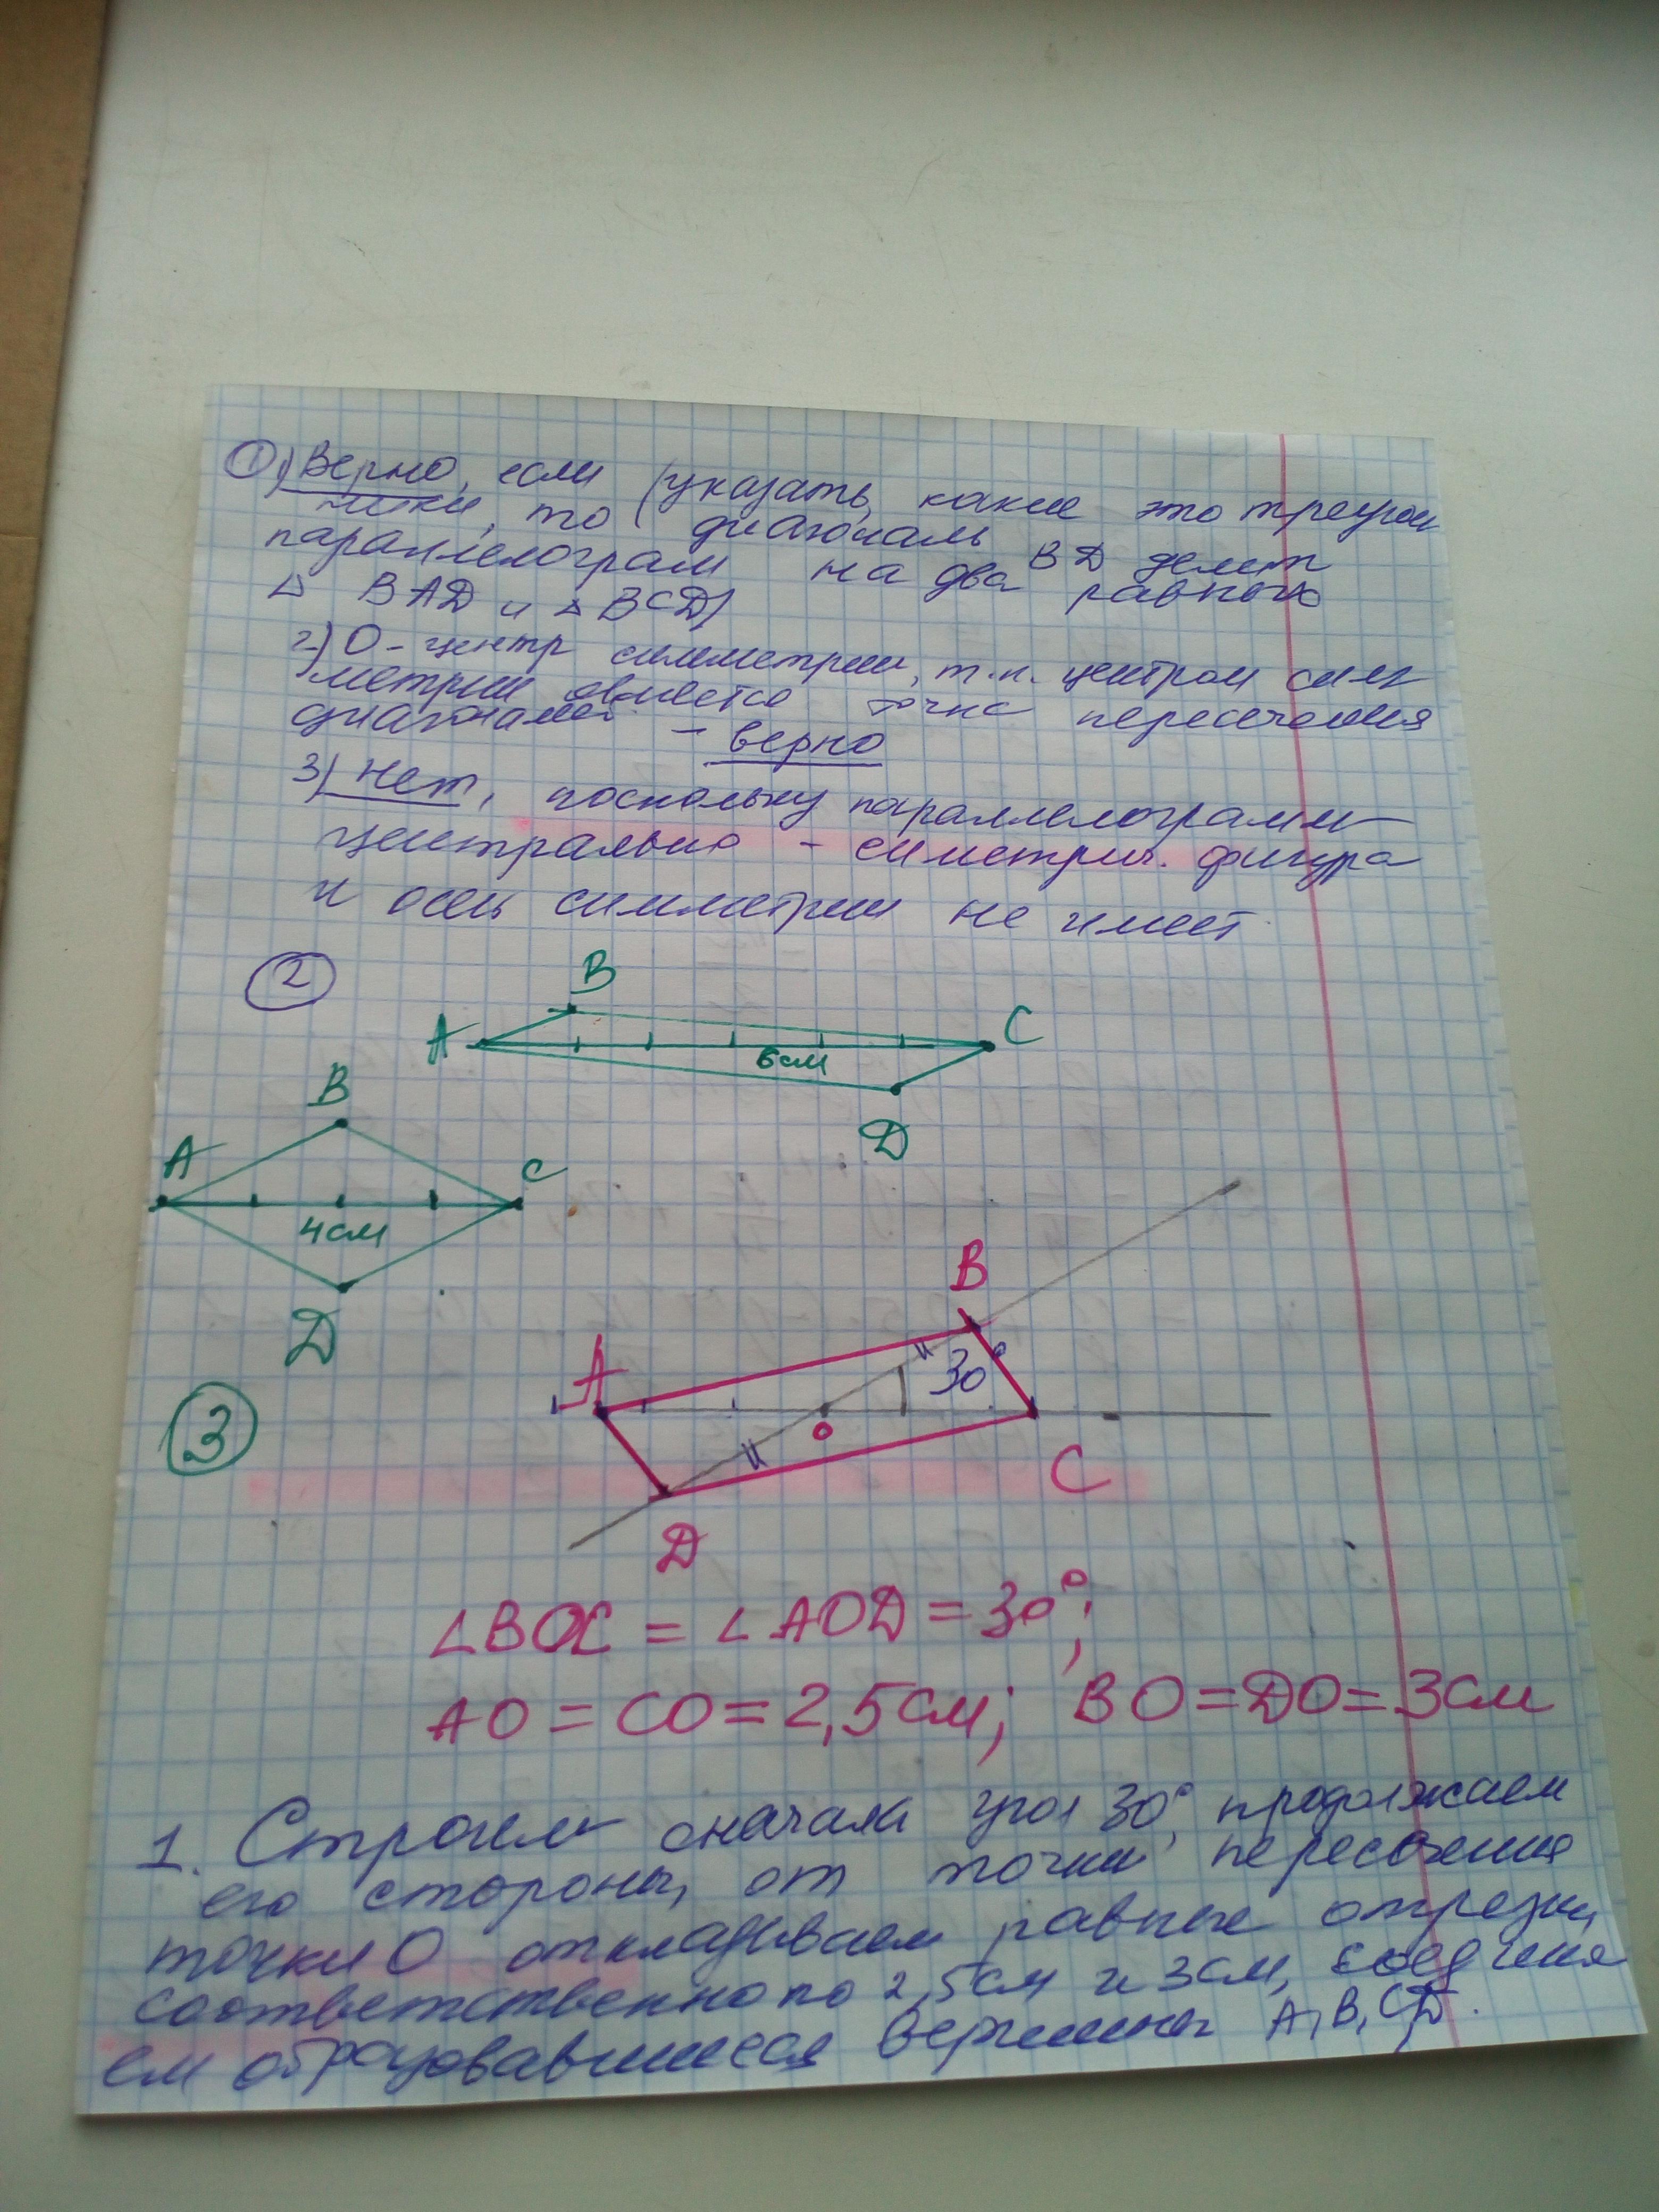 ① 1) Верно, если (указать, какие это треугольники, то диагональ BD делит
параллелограм на два равных
△ BAD и △ BCD)
2) О - центр симметрии, т.к. центром сим
метрии является точка пересечения
диагоналей - верно
3) Нет, поскольку параллелограмм
центрально - симетрич. фигура
и осей симметрии не имеет.
②
B
A
C
6см
D
B
A
C
4см
D
③
B
A
30°
O
C
D
∠BOC = ∠AOD = 30°;
AO = CO = 2,5см; BO = DO = 3см
1. Строим сначала угол 30°, продолжаем
его стороны, от точки пересечения
точки О откладываем равные отрезки,
соответственно по 2,5см и 3см, соединя
ем образовавшиеся вершины A, B, C, D.